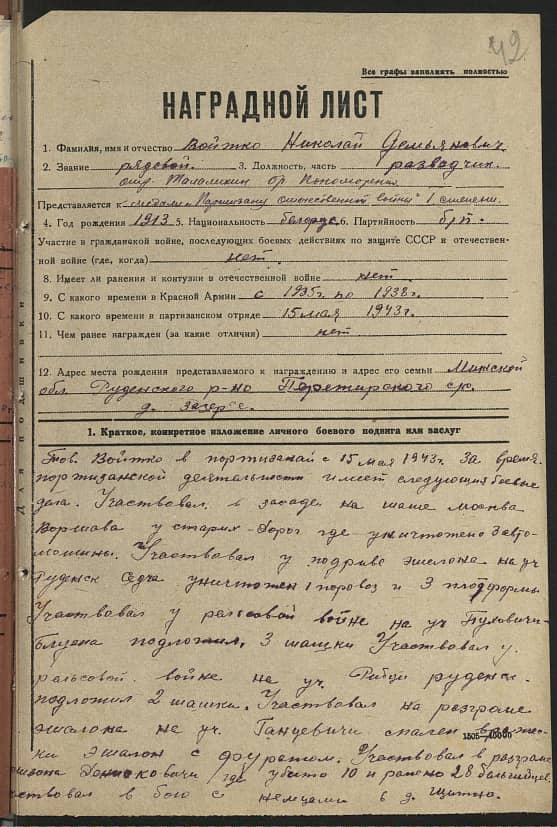 42
Все графы заполнять полностью
НАГРАДНОЙ ЛИСТ
1. Фамилия, имя и отчество Войтко Николай Демьянович
2. Звание рядовой. 3. Должность, часть разведчик
отр. Талалихин бр Пономаренко
Представляется к медали "Партизану отечественной войны" I степени
4. Год рождения 1913 5. Национальность белорус 6. Партийность б/п.
Участие в гражданской войне, последующих боевых действиях по защите СССР и отечествен-
ной войне (где, когда) нет
8. Имеет ли ранения и контузии в отечественной войне нет
9. С какого времени в Красной Армии с 1935г. по 1938г.
10. С какого времени в партизанском отряде 15 мая 1943г.
11. Чем ранее награжден (за какие отличия) нет
12. Адрес места рождения представляемого к награждению и адрес его семьи Минской
обл. Руденского р-на с/с.
д.
Для подшивки
1. Краткое, конкретное изложение личного боевого подвига или заслуг
Тов. Войтко в партизанай с 15 мая 1943г. За время
портизанской деятельности имеет следующия боевые
дела. Участвовал в засаде на шаше Москва
Воршава у старих-Дорог где уничтожено 3 авто-
мошины. Участвовал у подриве эшалона на уч
Руденск Седча уничтожен 1 поровоз и 3 плотформы
Участвовал у рельсовой войне на уч Пуховичи-
Блужа подложил 3 шашки Участвовал у
рельсовой войне на уч. руденск
подложил 2 шашки. Участвовал на розгроме
эшалона на уч. Ганцевичи спален
эшалон с фуражом. Участвовал в разгроме
где убито 10 и ранено 28
ствовал в бою с немцами в д. Щитно.